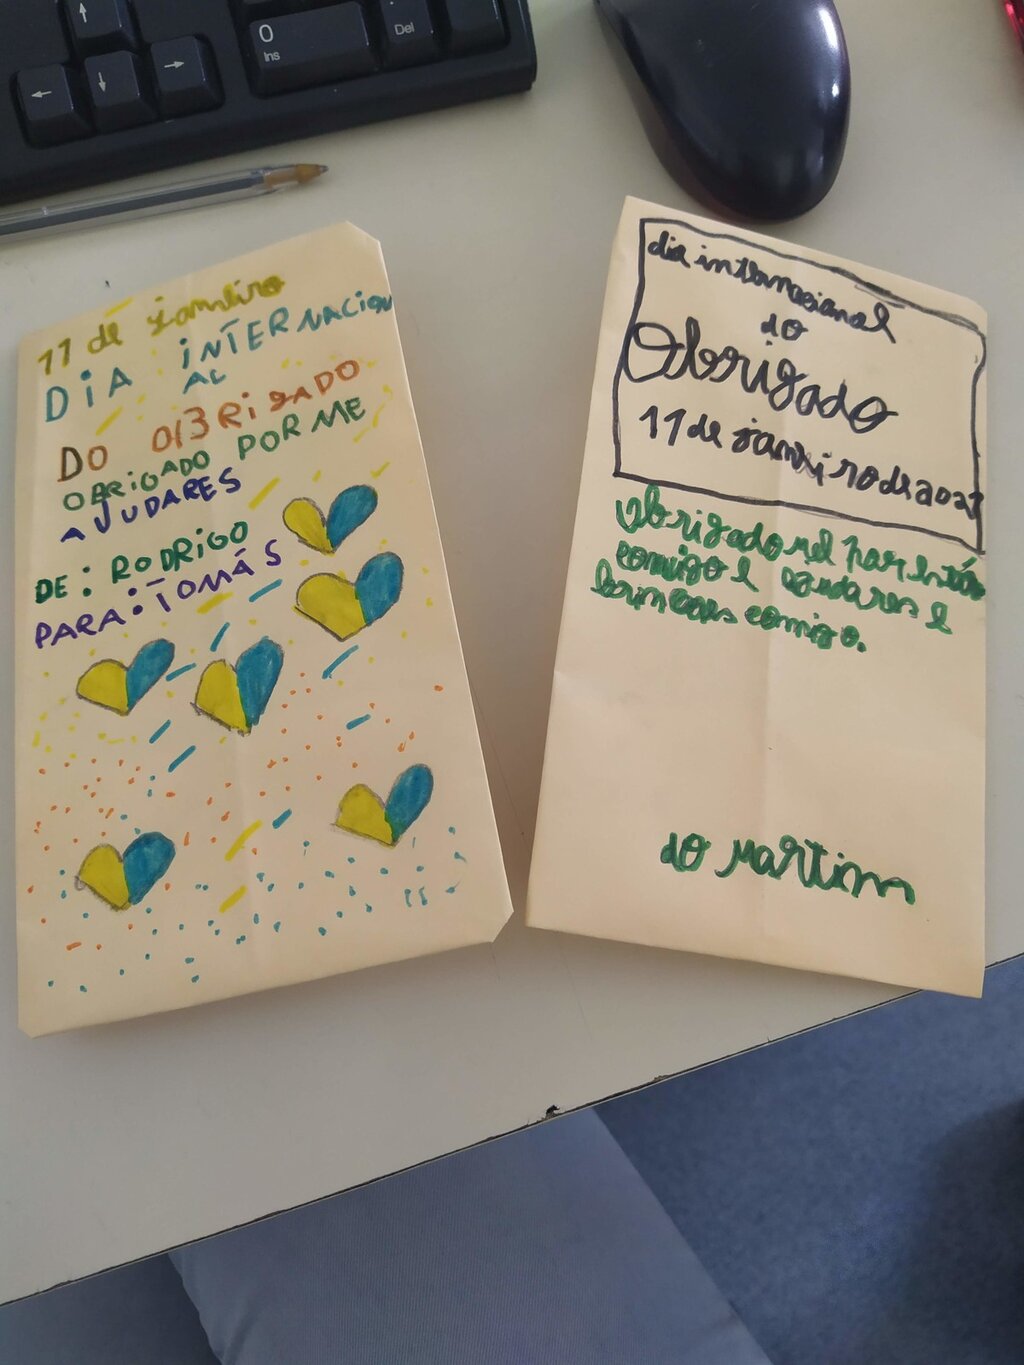 0
Ins
Del
11 de janeiro
DIA INTERNACION
AL
DO OBRIGADO
OBRIGADO POR ME
AJUDARES
DE: RODRIGO
PARA: TOMÁS
dia internasional
do
Obrigado
11 de janeiro de 2023
Obrigado
comigo e ajudares e
brincares comigo.
do Martim